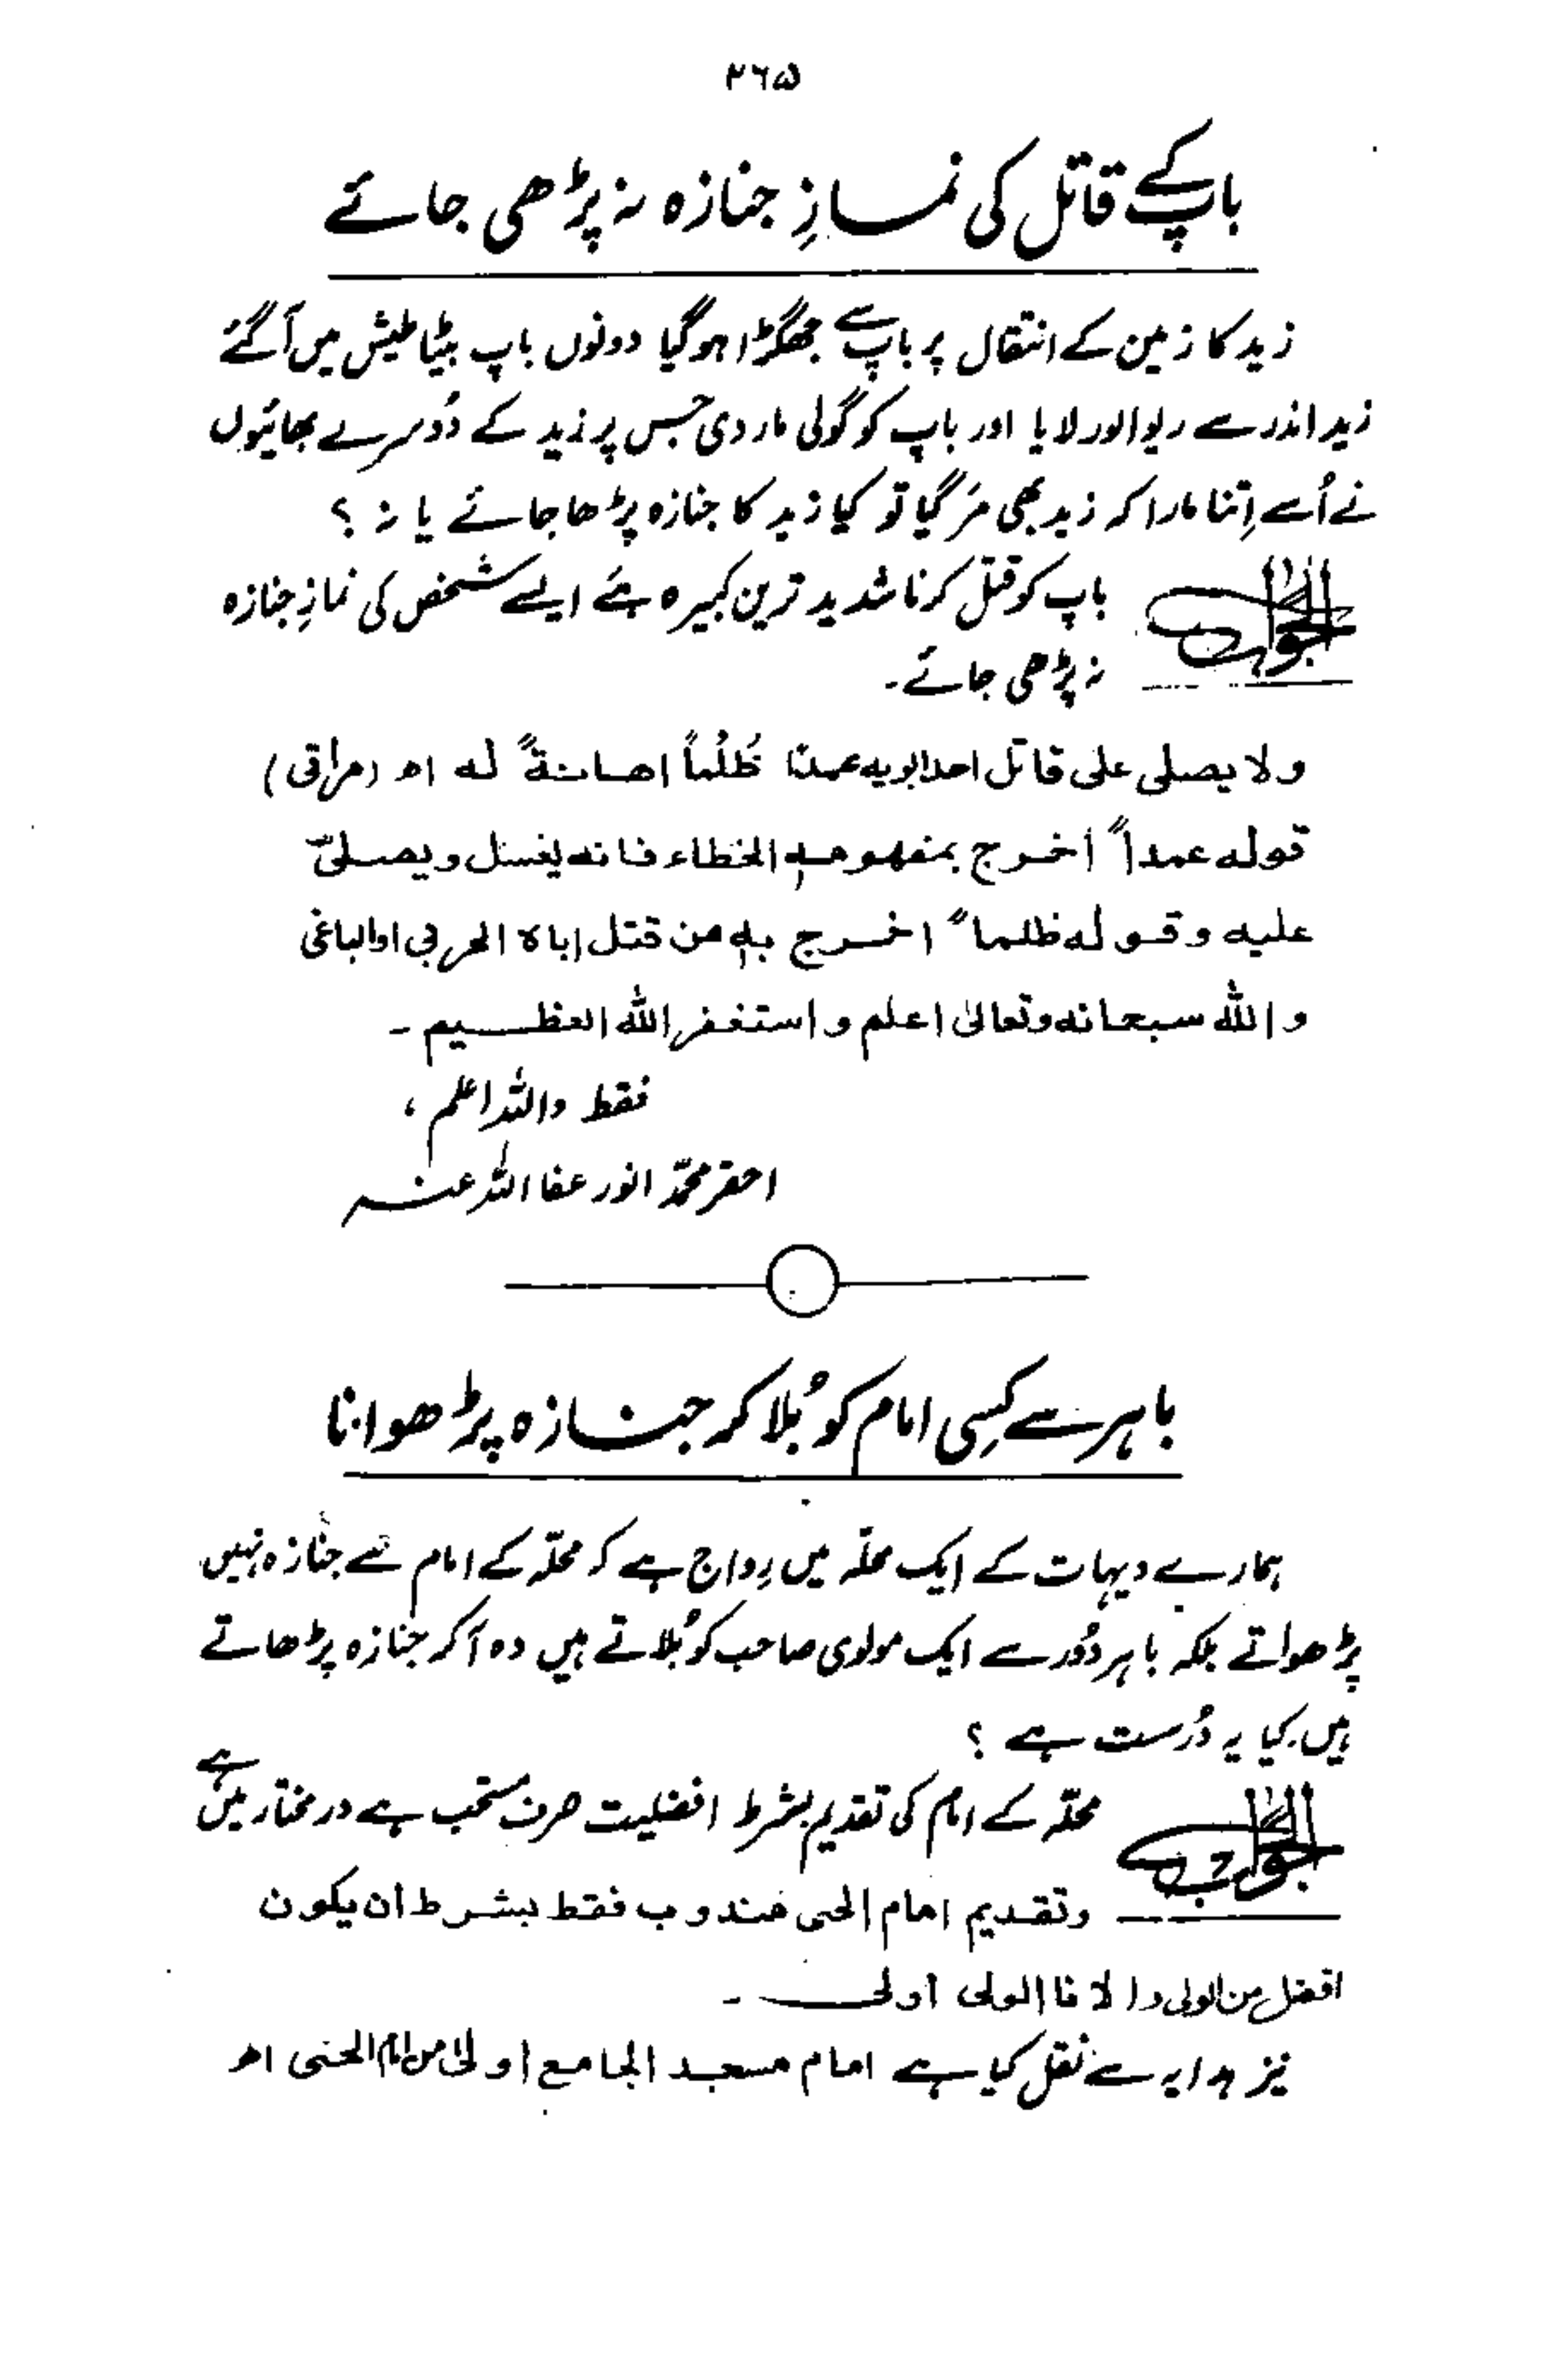 ۲٦۵
باپ کے قاتل کی نمازِ جنازہ نہ پڑھی جائے
زید کا زمین کے انتقال پر باپ سے جھگڑا ہوگیا دونوں باپ بیٹا طیش میں آگئے
زید اندر سے ریوالور لایا اور باپ کو گولی مار دی جس پر زید کے دُوسرے بھائیوں
نے اُسے اِتنا مارا کہ زید بھی مَر گیا تو کیا زید کا جنازہ پڑھا جائے یا نہ ؟
الجواب باپ کو قتل کرنا شدید ترین کبیرہ ہے ایسے شخص کی نمازِ جنازہ
نہ پڑھی جائے۔
ولا یصلی علی قاتل احد ابویہ عمدًا ظُلْماً اھانةً له اھ (مراقی)
قوله عمداً أخرج بمفهومہٖ الخطاء فانه یغسل ویصلیّ
علیه وقوله ظلماً اخرج بہٖ من قتل اباہ الحربی اوالباغی
والله سبحانه وتعالیٰ اعلم واستغفر الله العظیم۔
فقط واللہ اعلم ،
احقر محمّد انور عفا اللہ عنہ
باہر سے کِسی امام کو بُلا کر جنازہ پڑھوانا
ہمارے دیہات کے ایک محلّہ میں رِواج ہے کہ محلّہ کے امام سے جنازہ نہیں
پڑھواتے بلکہ باہر دُور سے ایک مولوی صاحب کو بُلاتے ہیں وہ آکر جنازہ پڑھاتے
ہیں۔ کیا یہ دُرست ہے ؟
الجواب محلّہ کے امام کی تقدیم بشرط افضلیت صرف مستحب ہے درمختار میں ہے
وتقدیم امام الحی مندوب فقط بشرط أن یکون
افضل من الولی والا فاالولی أولی۔
نیز ہدایہ سے نقل کیا ہے امام مسجد الجامع أولیٰ من امام الحی اھ